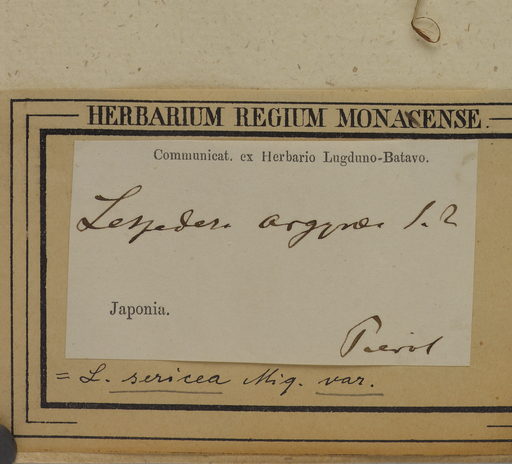 HERBARIUM REGIUM MONACENSE.
Communicat. ex Herbario Lugduno-Batavo.
Lespedeza argyraea S. Z
Japonia.
Pierot
= L. sericea Miq. var.